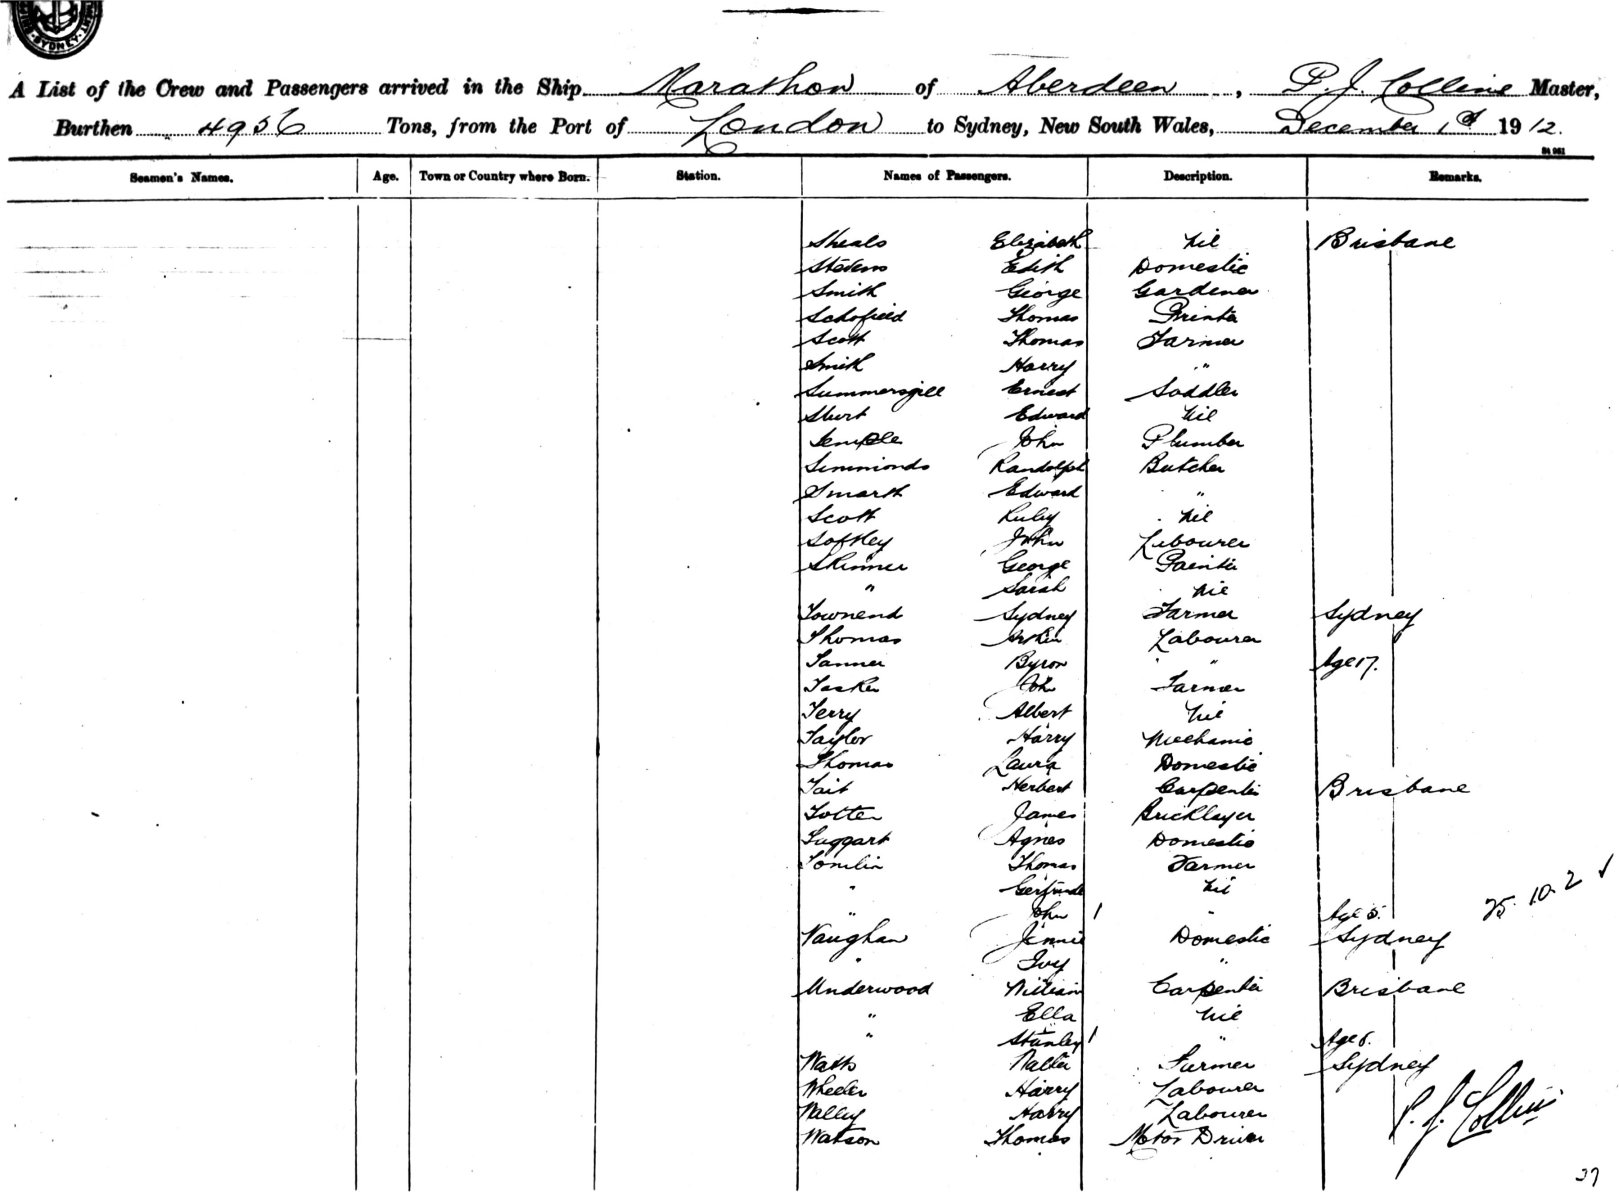 SYDNEY
A List of the Crew and Passengers arrived in the Ship Marathon of Aberdeen, P. J. Collins Master,
Burthen 4956 Tons, from the Port of London to Sydney, New South Wales, December 1st 1912.
Seamen's Names. Age. Town or Country where Born. Station. Names of Passengers. Description. Remarks.
Sheals Elizabeth Nil Brisbane
Stevens Edith Domestic
Smith George Gardener
Schofield Thomas Printer
Scott Thomas Farmer
Smith Harry "
Summersgill Ernest Saddler
Sturt Edward Nil
Semple John Plumber
Simmonds Randolph Butcher
Smarth Edward "
Scott Ruby Nil
Softley John Labourer
Skinner George Painter
" Sarah Nil
Townend Sydney Farmer Sydney
Thomas Arthur Labourer
Tanner Byron " Age 17.
Tasker John Farmer
Terry Albert Nil
Taylor Harry Mechanic
Thomas Laura Domestic
Tait Herbert Carpenter Brisbane
Totten James Bricklayer
Taggart Agnes Domestic
Tomlin Thomas Farmer
" Gertrude Nil
" John 1 " Age 5. 25.10.2 ✓
Vaughan Jennie Domestic Sydney
" Ivy "
Underwood William Carpenter Brisbane
" Ella Nil
" Stanley 1 " Age 6.
Watts Walter Farmer Sydney
Wheeler Harry Labourer
Walley Harry Labourer P. J. Collins
Watson Thomas Motor Driver
37